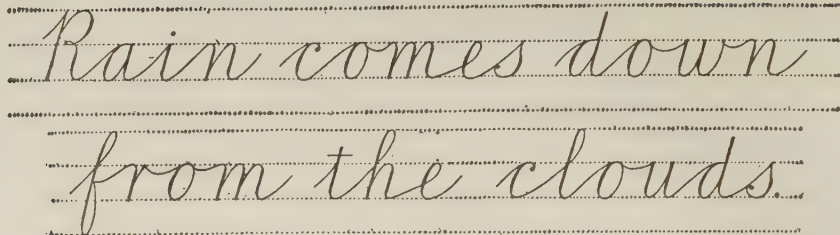 Rain comes down
from the clouds.